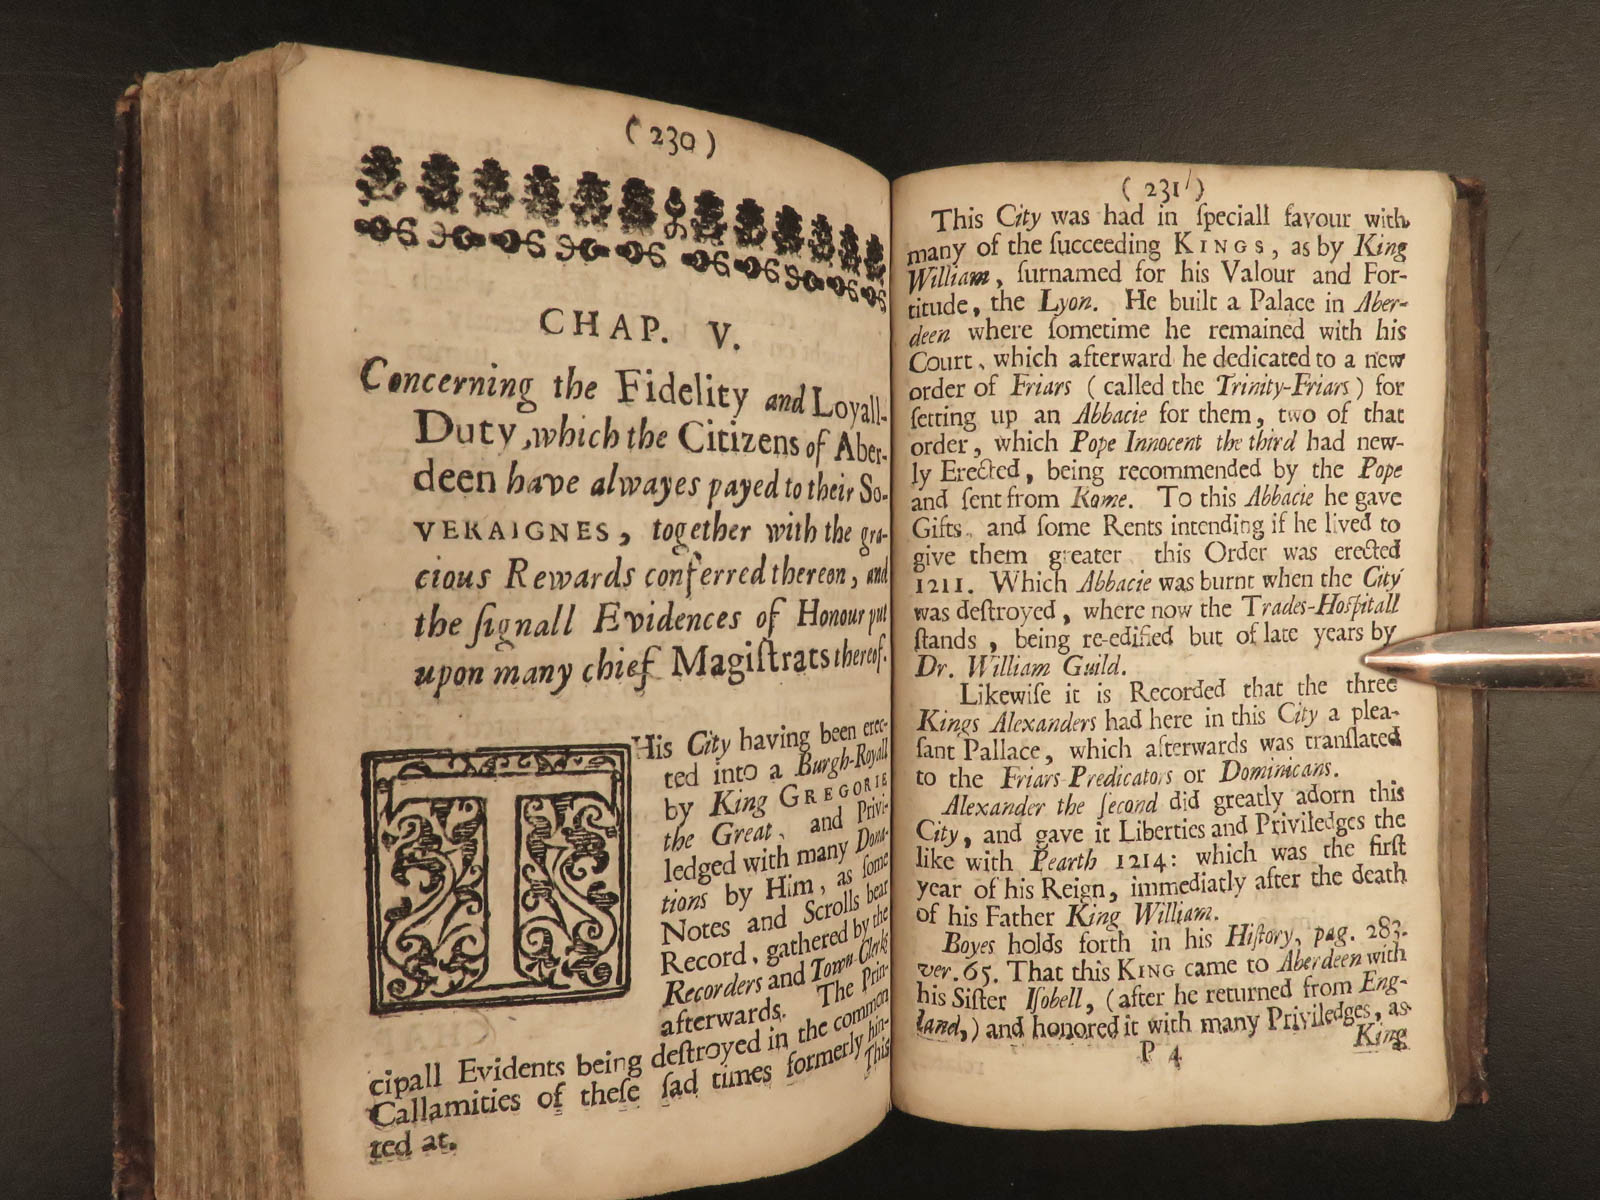 (230)
CHAP. V.
Concerning the Fidelity and Loyall-
Duty, which the Citizens of Aber-
deen have alwayes payed to their So-
VERAIGNES, together with the gra-
cious Rewards conferred thereon, and
the ſignall Evidences of Honour put
upon many chief Magiſtrats thereof.
THis City having been erec-
ted into a Burgh-Royall
by King GREGORIE
the Great, and Privi-
ledged with many Dona-
tions by Him, as ſome
Notes and Scrolls bear
Record, gathered by the
Recorders and Town-Clerks
afterwards. The Prin-
cipall Evidents being deſtroyed in the common
Callamities of theſe ſad times formerly hin-
ted at.
This
(231)
This City was had in ſpeciall favour with
many of the ſucceeding KINGS, as by King
William, ſurnamed for his Valour and For-
titude, the Lyon. He built a Palace in Aber-
deen where ſometime he remained with his
Court, which afterward he dedicated to a new
order of Friars (called the Trinity-Friars) for
ſetting up an Abbacie for them, two of that
order, which Pope Innocent the third had new-
ly Erected, being recommended by the Pope
and ſent from Rome. To this Abbacie he gave
Gifts, and ſome Rents intending if he lived to
give them greater this Order was erected
1211. Which Abbacie was burnt when the City
was deſtroyed, where now the Trades-Hoſpitall
ſtands, being re-edified but of late years by
Dr. William Guild.
Likewiſe it is Recorded that the three
Kings Alexanders had here in this City a plea-
ſant Pallace, which afterwards was tranſlated
to the Friars-Predicators or Dominicans.
Alexander the ſecond did greatly adorn this
City, and gave it Liberties and Priviledges the
like with Pearth 1214: which was the firſt
year of his Reign, immediatly after the death
of his Father King William.
Boyes holds forth in his Hiſtory, pag. 283.
ver. 65. That this KING came to Aberdeen with
his Siſter Iſobell, (after he returned from Eng-
land,) and honored it with many Priviledges, as
P 4
King